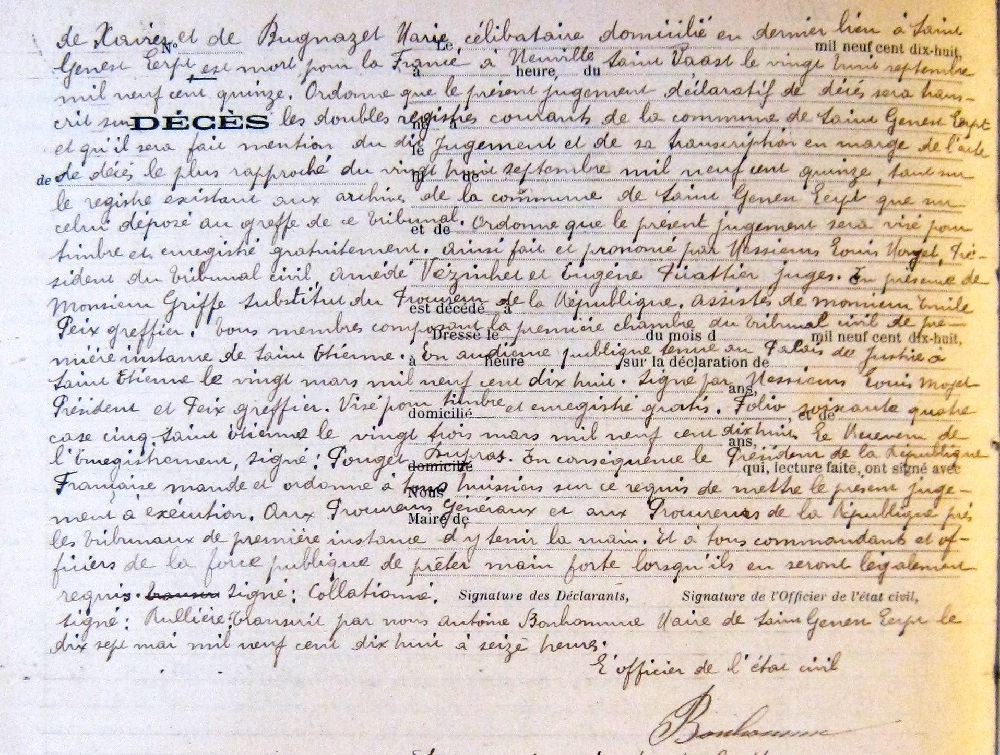 de Xavier et de Bugnazet Marie célibataire domicilié en dernier lieu à Saint
N° Le mil neuf cent dix-huit,
Genest Lerpt est mort pour la France à Neuville Saint Vaast le vingt huit septembre
à heure, du
mil neuf cent quinze. Ordonne que le présent jugement déclaratif de décès sera trans-
crit sur les doubles registres courants de la commune de Saint Genest Lerpt
DÉCÈS né à
et qu'il sera fait mention du dit jugement et de sa transcription en marge de l'acte
le
de de décès le plus rapproché du vingt huit septembre mil neuf cent quinze, tant sur
le registre existant aux archives de la commune de Saint Genest Lerpt que sur
celui déposé au greffe de ce tribunal. Ordonne que le présent jugement sera visé pour
et de
timbre et enregistré gratuitement. Ainsi fait et prononcé par Messieurs Louis Moyet, Pré-
sident du tribunal civil, Amédé Vezinhet et Eugène Fuattier juges. En présence de
Monsieur Griffe substitut du Procureur de la République. Assistés de monsieur Emile
est décédé à
Peix greffier. Tous membres composant la première chambre du tribunal civil de pre-
Dressé le du mois d mil neuf cent dix-huit,
mière instance de Saint Etienne. En audience publique tenue au Palais de Justice à
à heure sur la déclaration de
Saint Etienne le vingt mars mil neuf cent dix huit. Signé par Messieurs Louis Moyet
ans,
Président et Peix greffier. Visé pour timbre et enregistré gratis. Folio soixante quatre
domicilié et de
case cinq Saint Etienne le vingt trois mars mil neuf cent dix huit. Le Receveur de
ans,
l'Enregistrement, signé: Pouget Dupras. En conséquence le Président de la République
domicilié qui, lecture faite, ont signé avec
Française mande et ordonne à tous huissiers sur ce requis de mettre le présent juge-
Nous
ment à exécution. Aux Procureurs Généraux et aux Procureurs de la République près
Maire de
les tribunaux de première instance d'y tenir la main. Et à tous commandants et of-
ficiers de la force publique de prêter main forte lorsqu'ils en seront légalement
requis. signé: Collationné. Signature des Déclarants, Signature de l'Officier de l'état civil,
signé: Rullière. Transcrit par nous Antoine Bonhomme Maire de Saint Genest Lerpt le
dix sept mai mil neuf cent dix huit à seize heures.
L'officier de l'état civil
Bonhomme